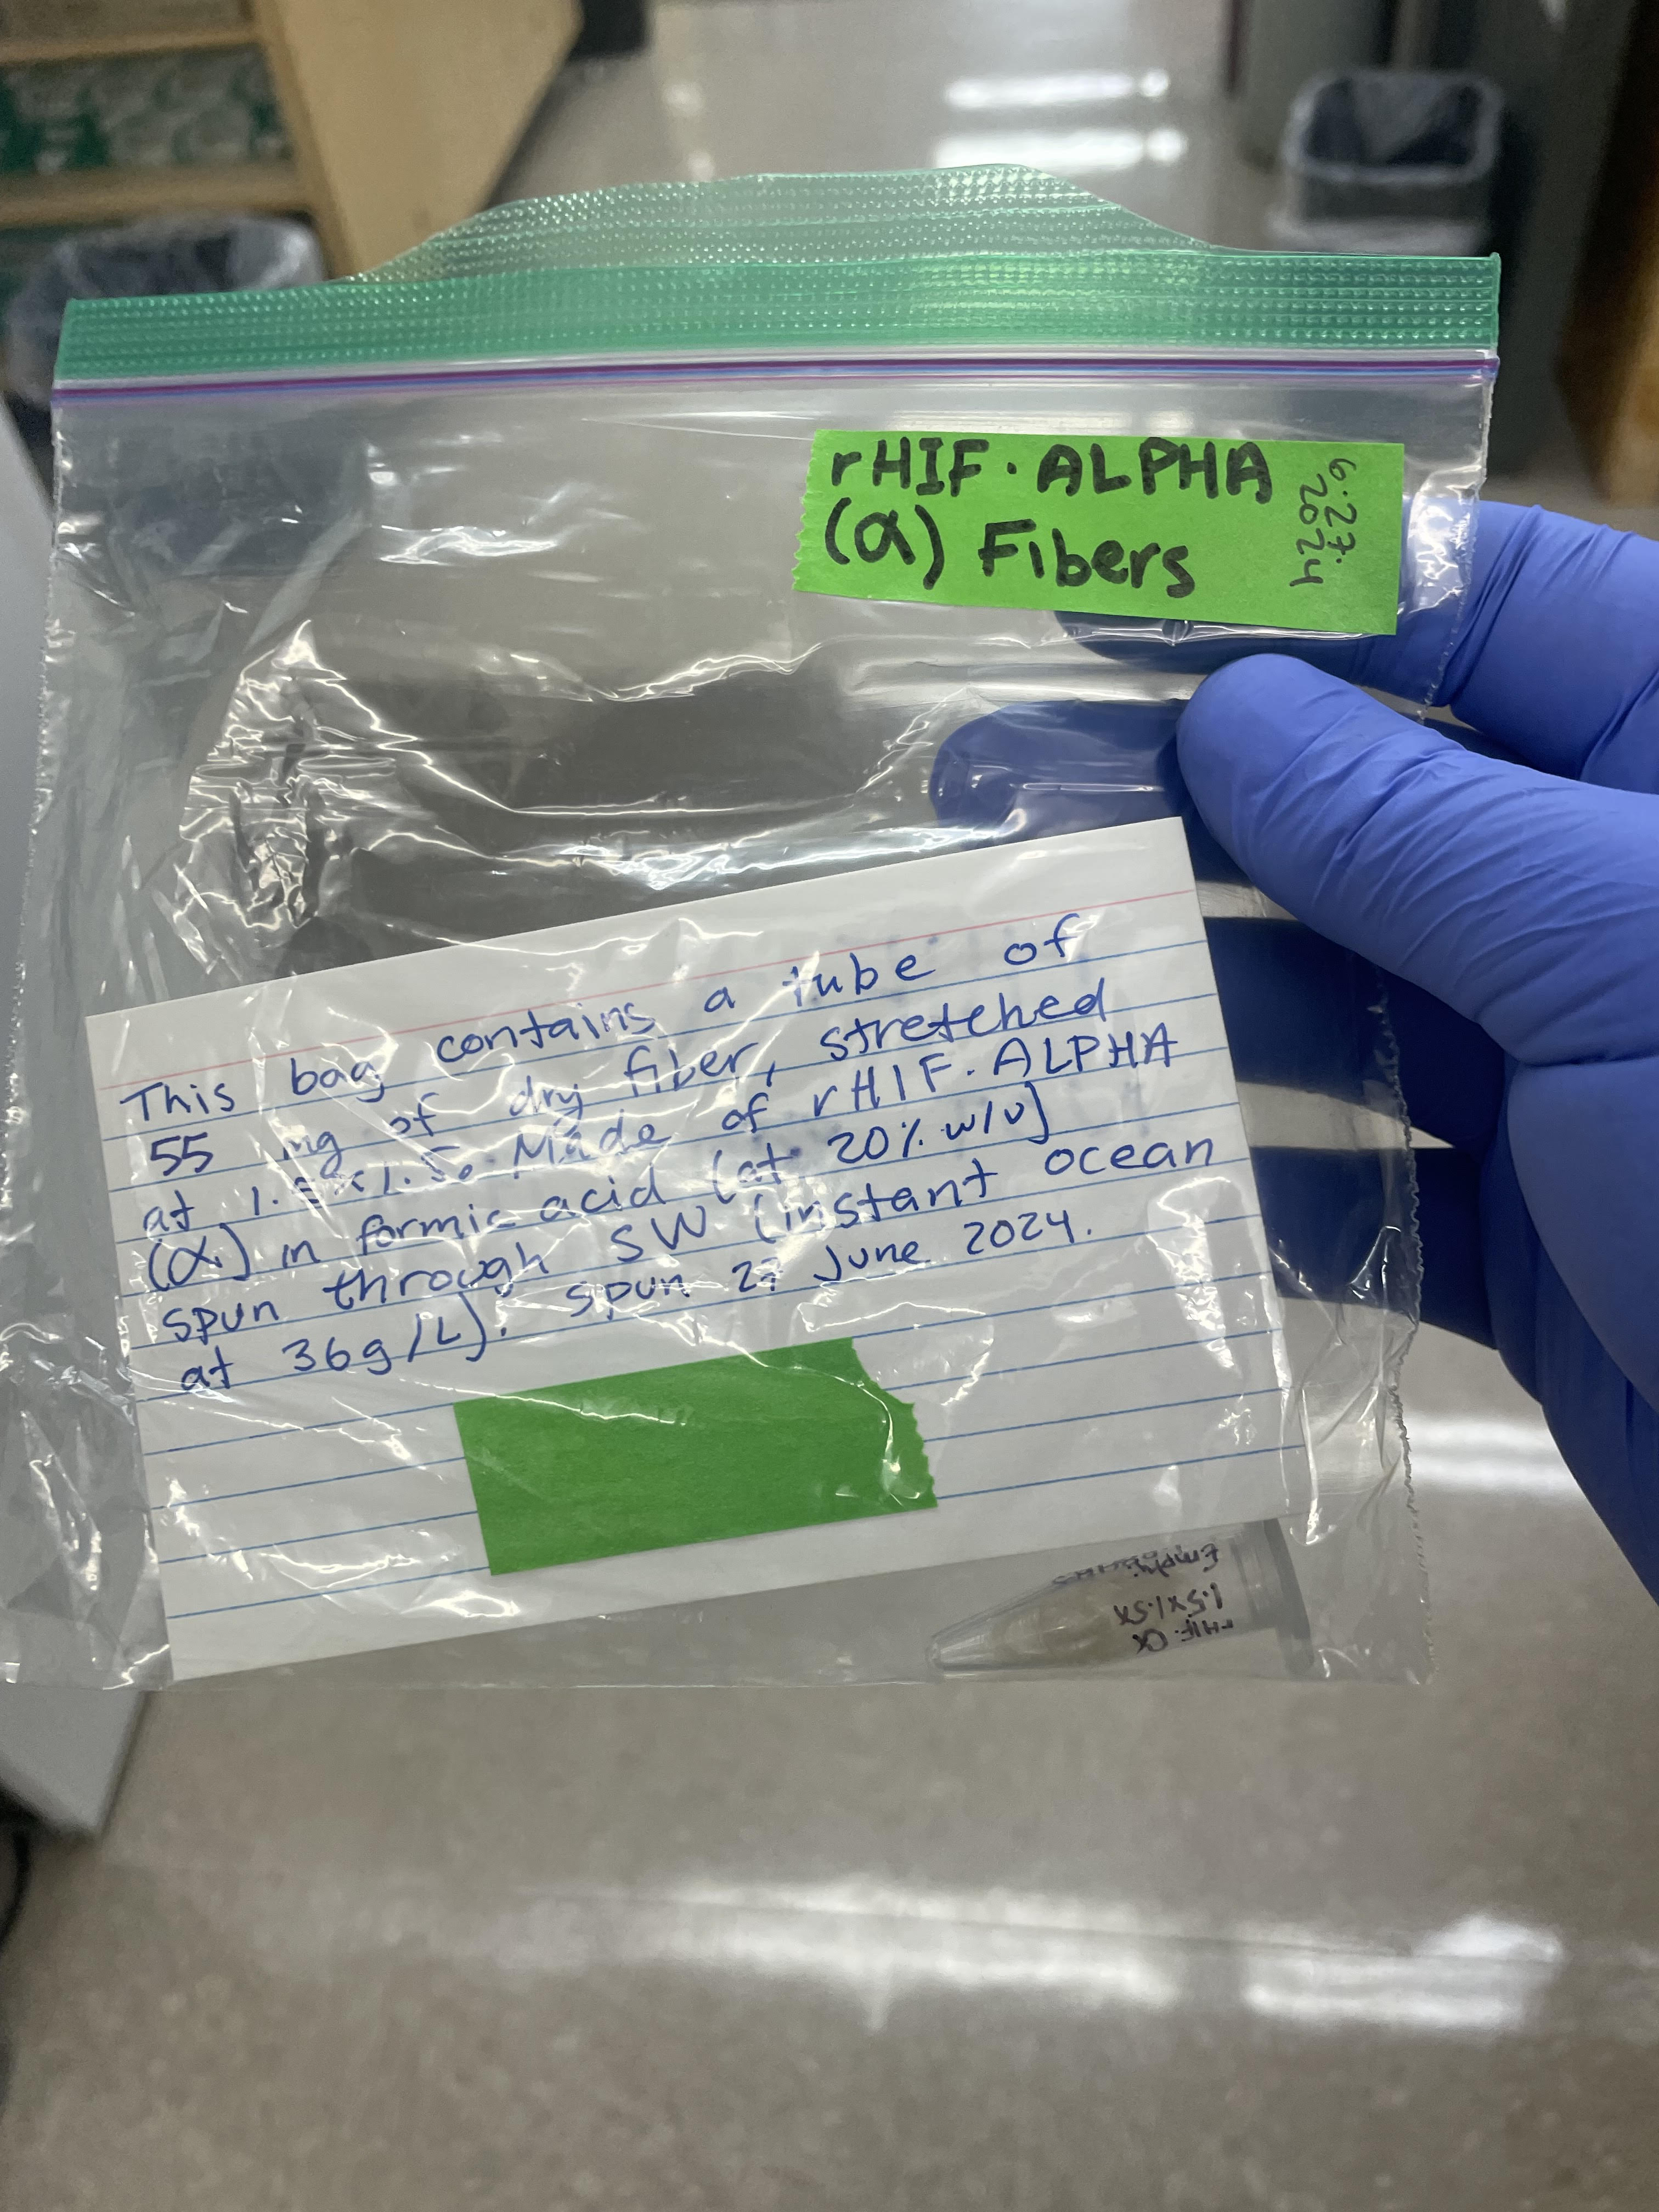 rHIF. ALPHA
(α) Fibers
6.27.
2024
This bag contains a tube of
55 mg of dry fiber, stretched
at 1.5x1.5. Made of rHIF. ALPHA
(α) in formic acid (at 20% w/v)
spun through SW (instant ocean
at 36g/L). Spun 27 June 2024.
rHIF. α
1.5x1.5x